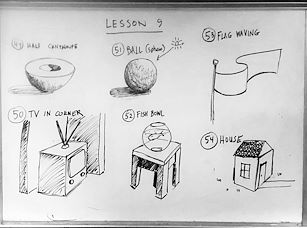 LESSON 9
49 HALF CANTALOUPE
51 BALL (Sphere)
53 FLAG WAVING
50 TV IN CORNER
52 FISH BOWL
54 HOUSE